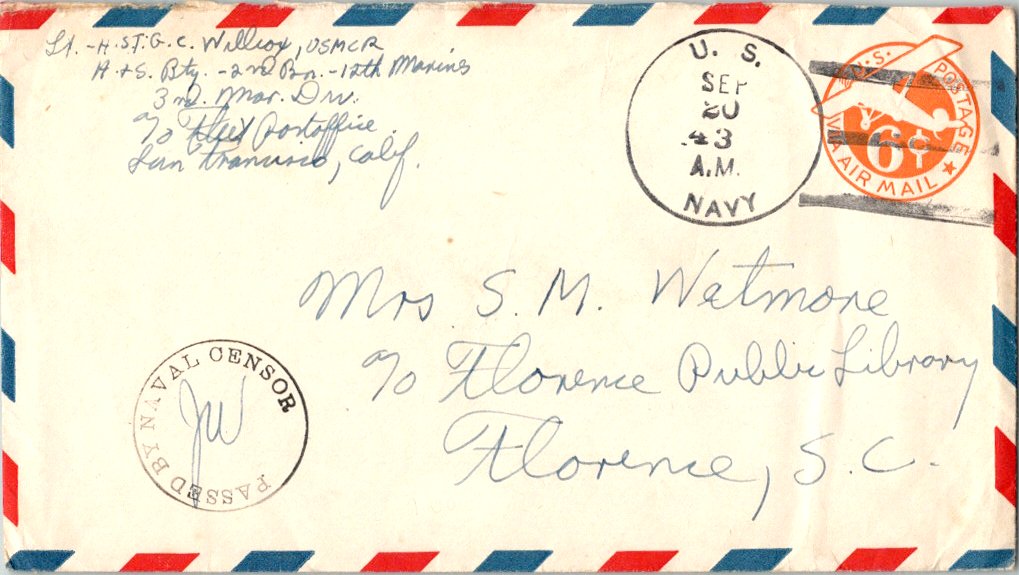 Lt. - H. ST. G. C. Willcox, USMCR
H + S. Bty. - 2nd Bn. - 12th Marines
3rd. Mar. Div.
c/o Fleet Postoffice
San Francisco, Calif.
U. S.
SEP
20
43
A.M.
NAVY
U.S. POSTAGE
6¢
VIA AIR MAIL
Mrs. S. M. Wetmore
c/o Florence Public Library
Florence, S. C.
PASSED BY NAVAL CENSOR
JW